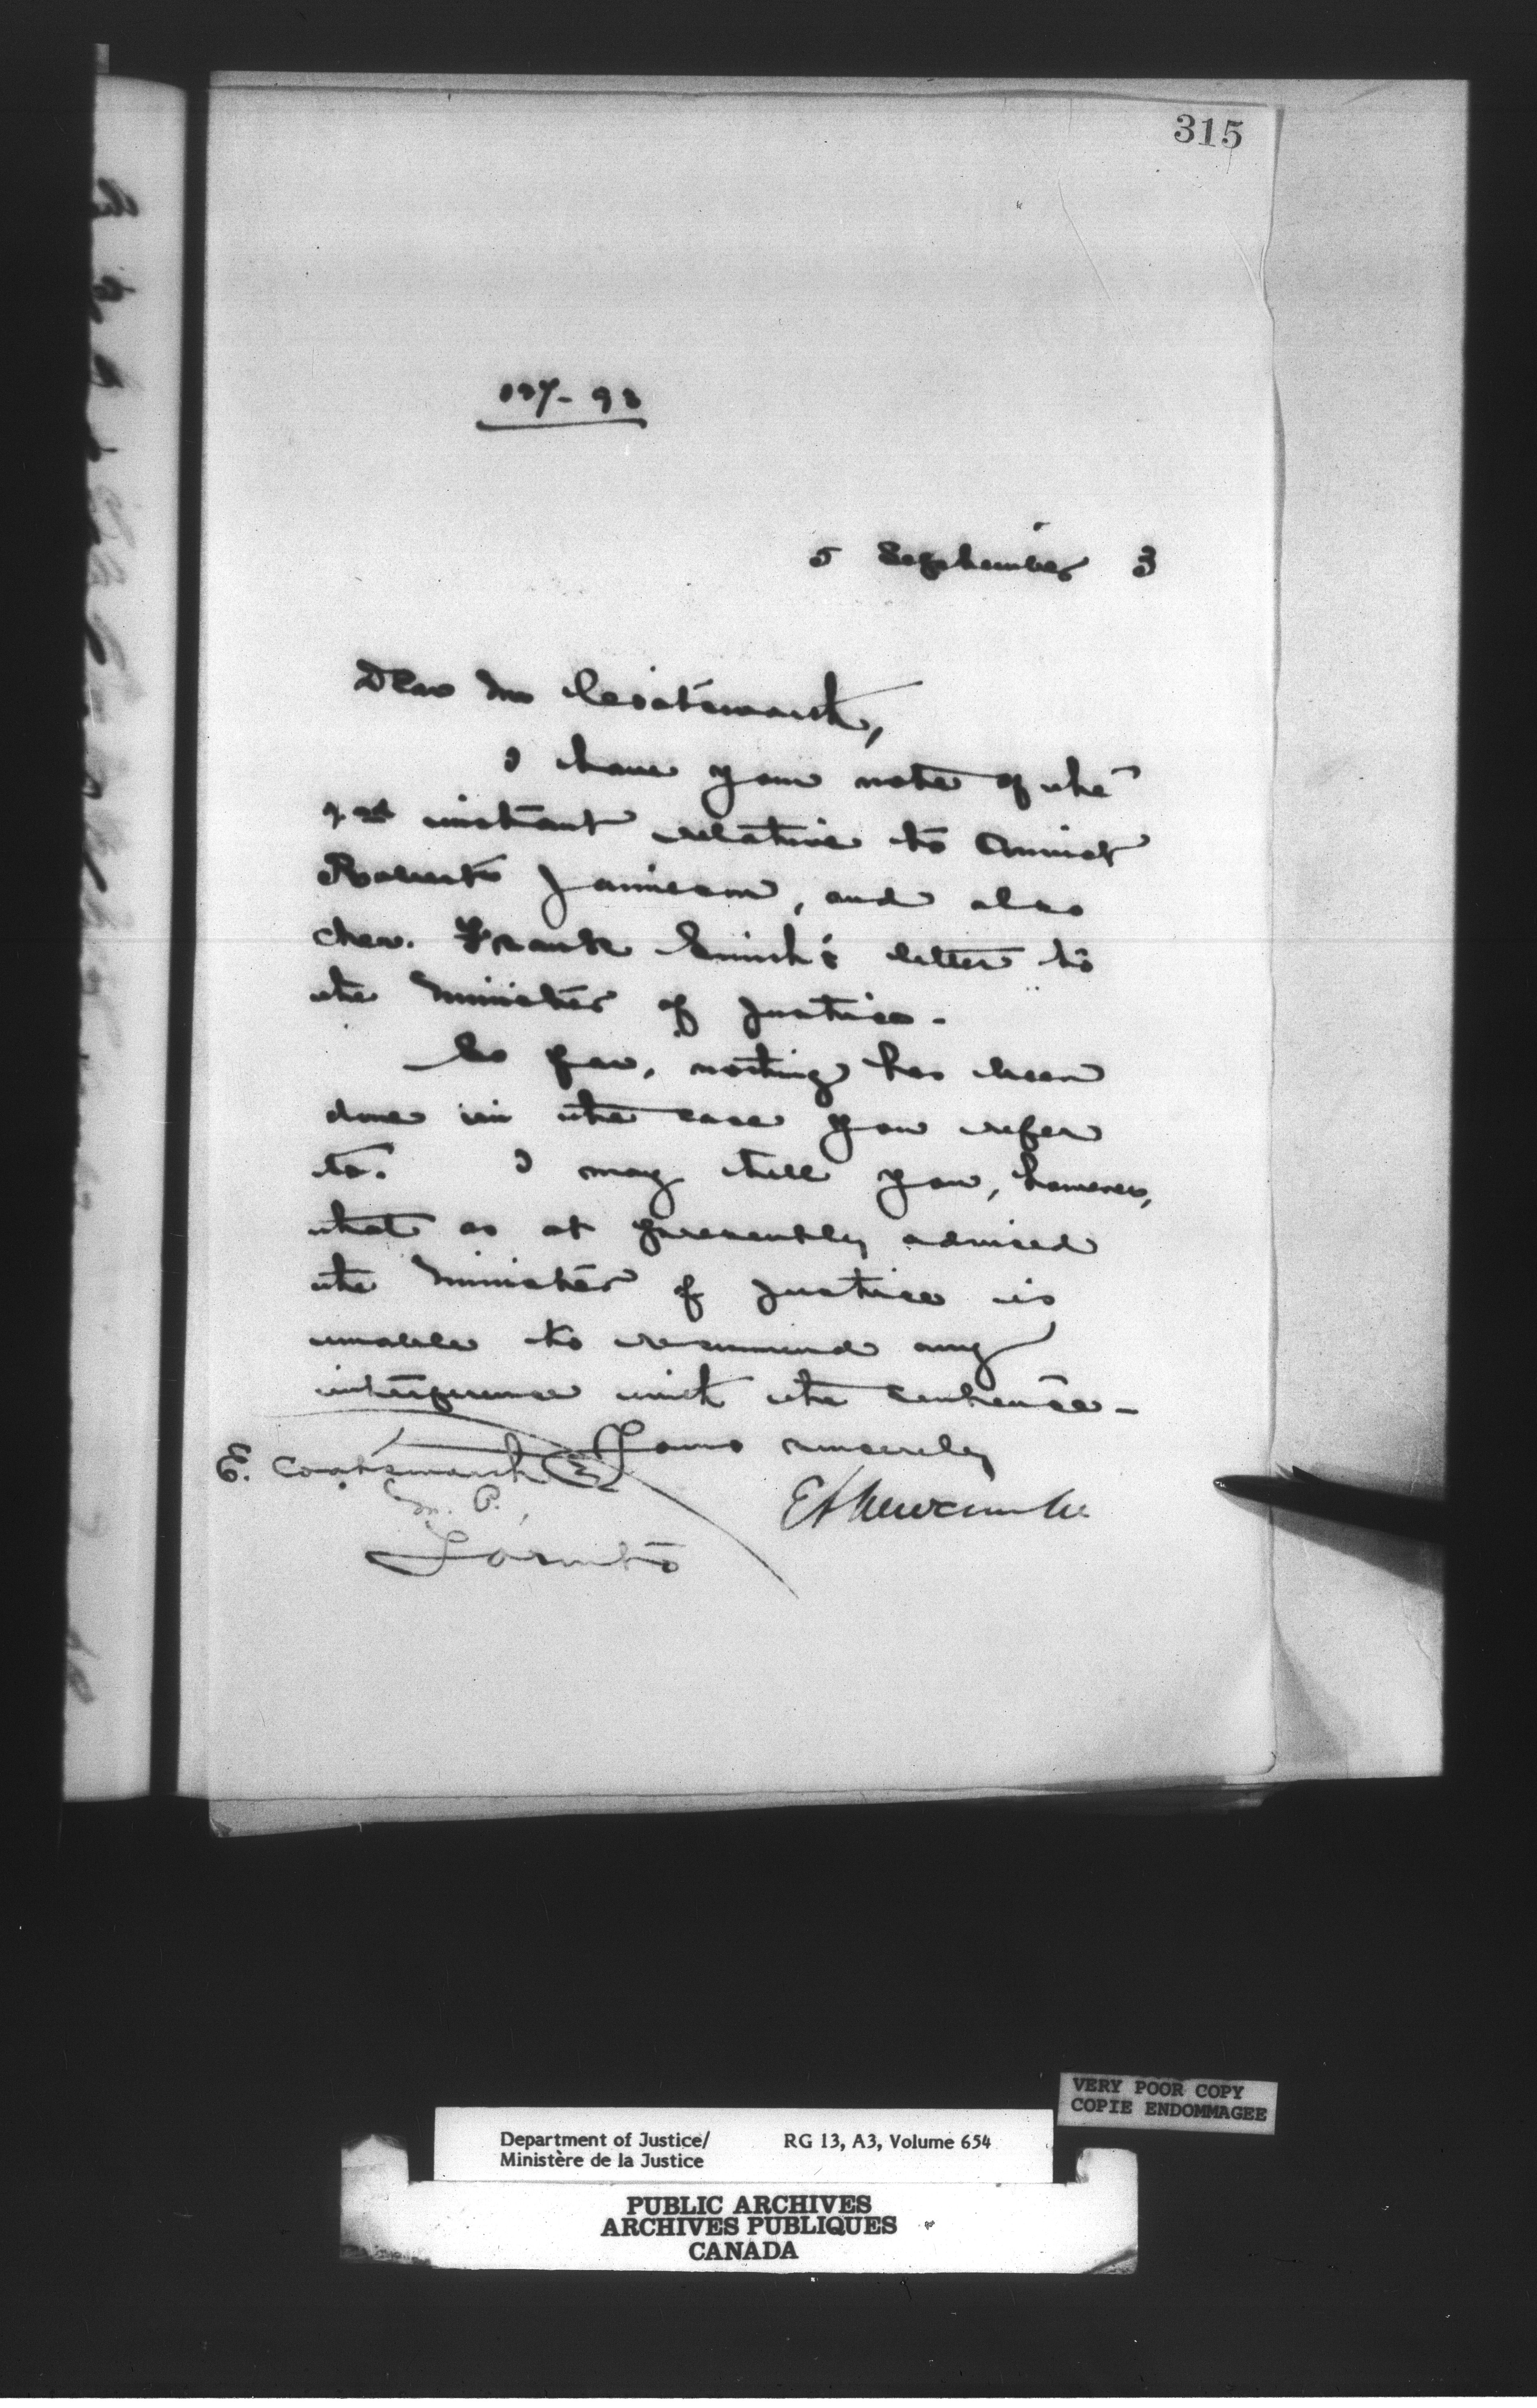 315
127-93
5 September 3
Dear Mr Coatsworth,
I have your note of the
instant relative to Convict
Roberts Jamieson, and also
Chev. Frank Smith's letter to
the Minister of Justice.
So far, nothing has been
done in the case you refer
to. I may tell you, however,
that as at presently advised
the Minister of Justice is
unable to recommend any
interference with the sentence -
Yours sincerely
E. Coatsworth Esq
M. P.,
E L Newcombe
Toronto
VERY POOR COPY
COPIE ENDOMMAGEE
Department of Justice/ RG 13, A3, Volume 654
Ministère de la Justice
PUBLIC ARCHIVES
ARCHIVES PUBLIQUES
CANADA